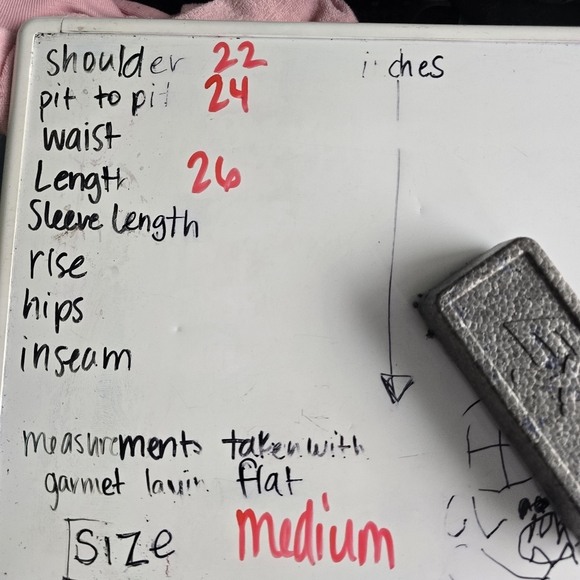 shoulder 22 inches
pit to pit 24
waist
Length 26
Sleeve Length
rise
hips
inseam
measurments taken with
garmet layin flat
SIZE medium